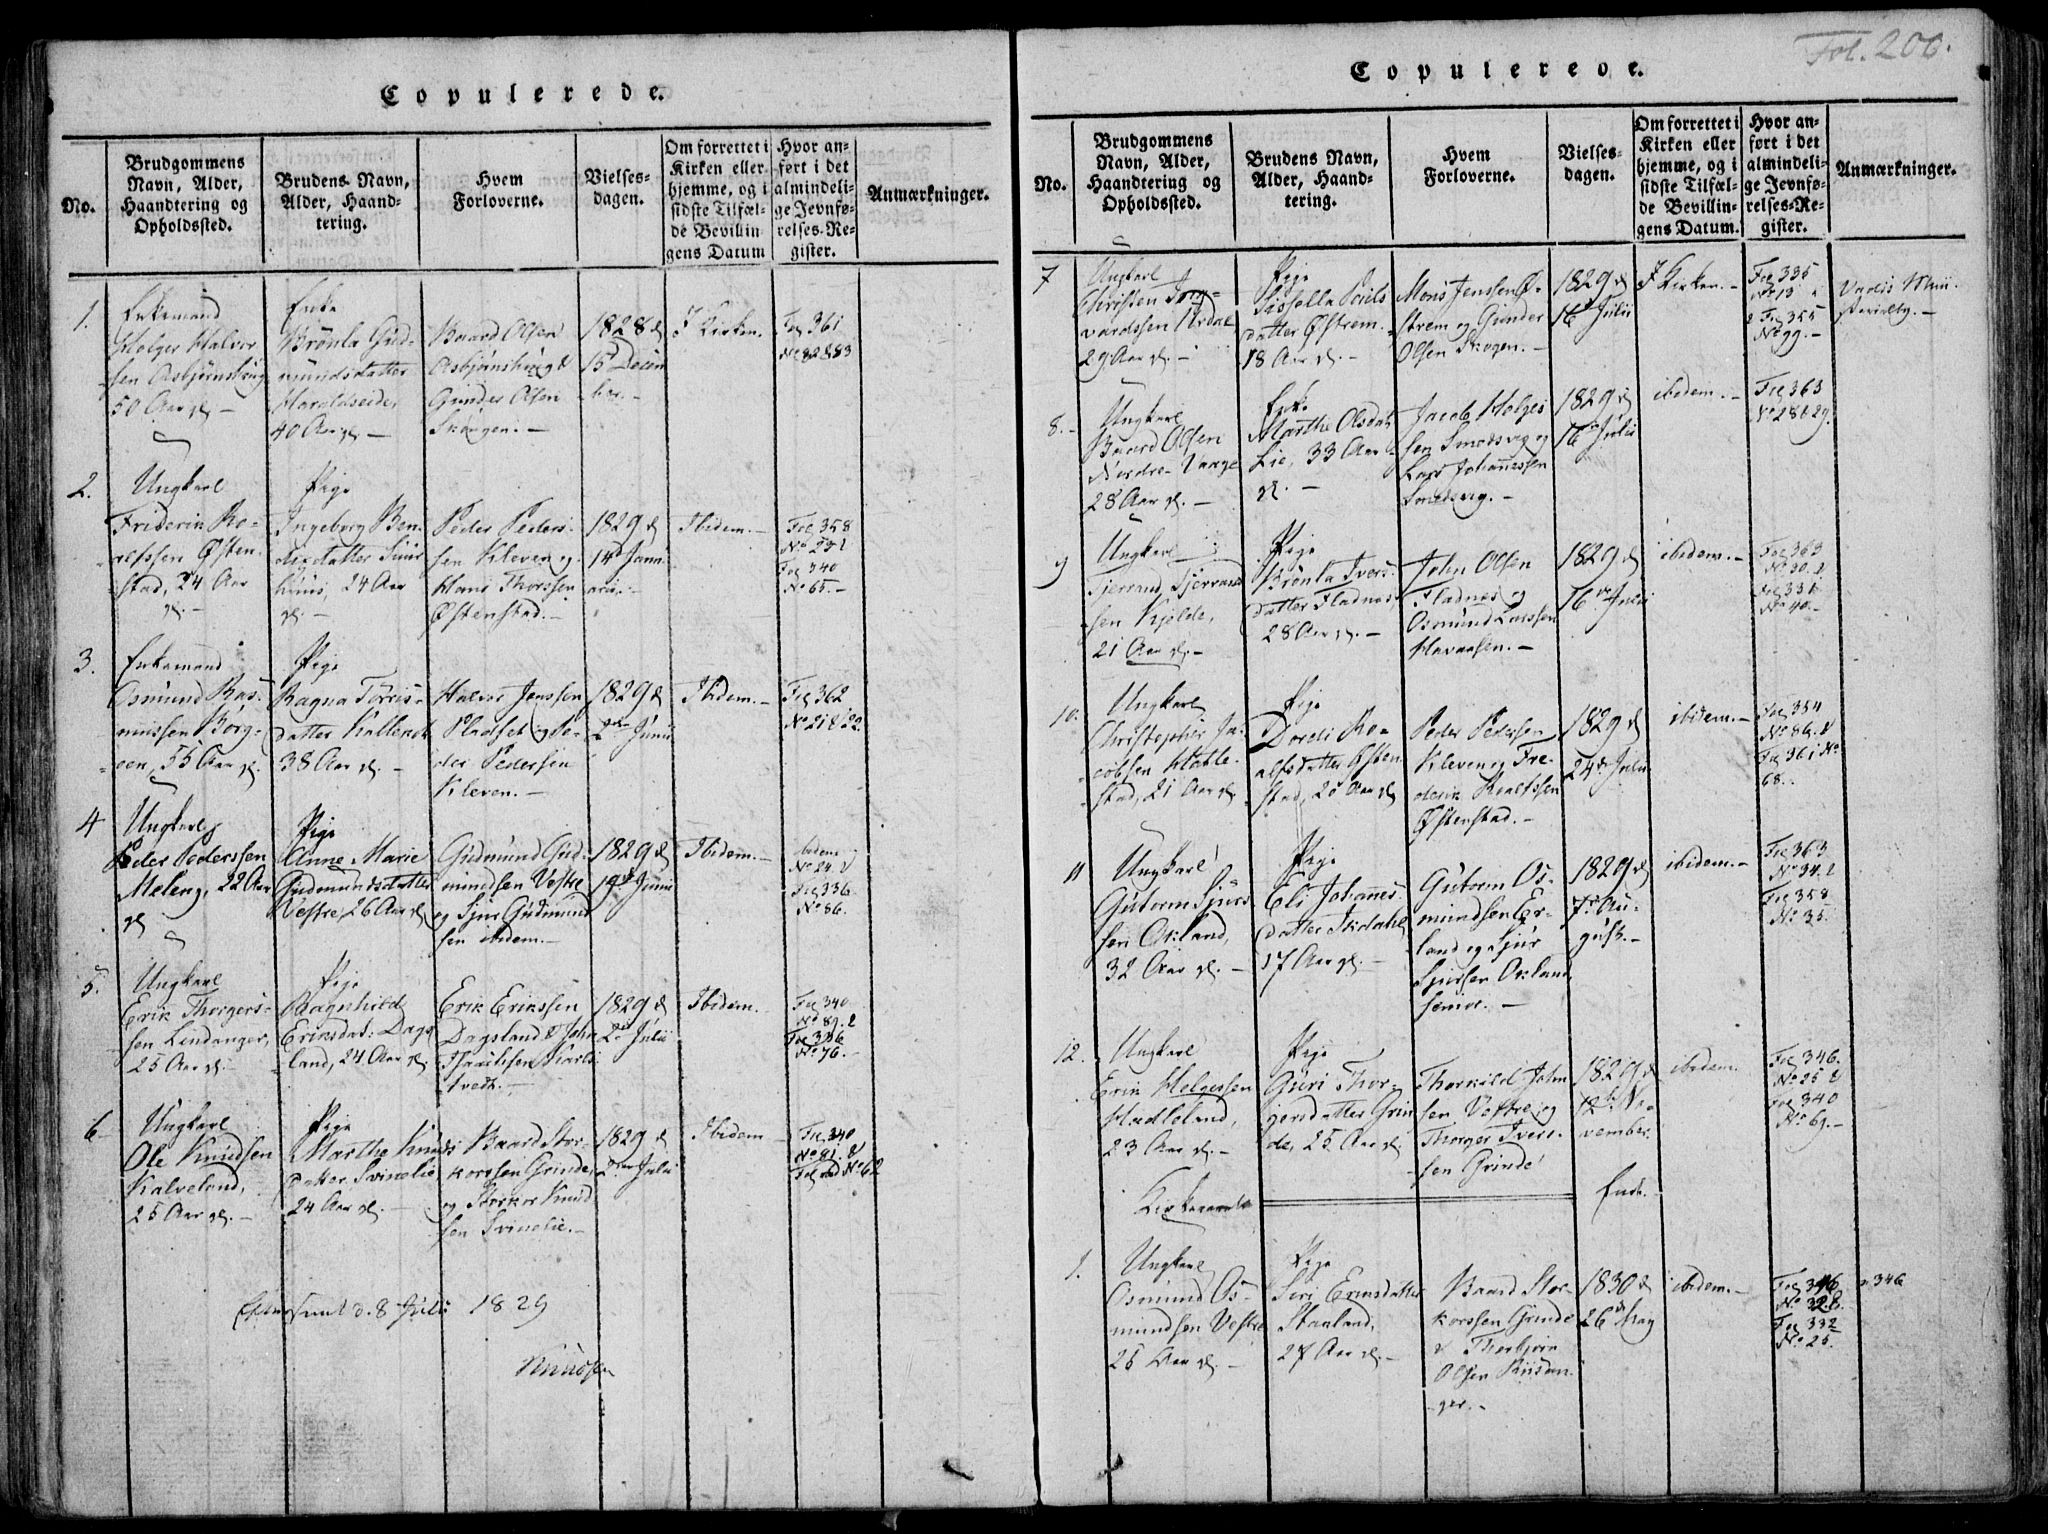 Copulerede.
No.
Brudgommens
Navn, Alder,
Haandtering og
Opholdssted.
Brudens Navn,
Alder, Haand-
tering.
Hvem
Forloverne.
Vielses-
dagen.
Om forrettet i
Kirken eller
hjemme, og i
sidste Tilfæl-
de Bevillin
gens Datum
Hvor an-
ført i det
almindeli-
ge Jevnfø-
relses-Re-
gister.
Anmærkninger.
1.
Enkemand
Holger Halvor
sen Asbjørnshuug
50 Aar gl. –
Enke
Brønla Gud-
mundsdatter
Haraldseide,
40 Aar gl. –
Baard Olsen
Asbjørnshuug &
Gunder Olsen
Skogen. –
1828 d
15 Decem
ber. –
I Kirken.
Fol 361
No 82 & 83
2.
Ungkarl
Friderik Ro-
alfssen Østen-
stad, 24 Aar
gl. –
Pige
Ingeborg Ben-
dixdatter
24 Aar
gl. –
Peder Peder-
sen Kleven og
Hans Thorssen
Østenstad. –
1829 d
14 Janu
arii. –
Ibidem. –
Fol 358
Fol 340
No 65. –
3.
Enkemand
Osmund Ras-
mussen Borg-
een, 55 Aar gl.
Pige
Ragna Torris-
datter
38 Aar gl. –
Halvor Jenssen
og Pe-
der Pedersen
Kleven. –
1829 d
2den Junii
Ibidem. –
Fol 362
No 21 & 22
4
Ungkarl
Peder Pederssen
Meleng, 22 Aar
gl
Pige
Anne Marie
Gudmundsdatter
Vestre, 26 Aar gl.
Gudmund Gud-
mundsen Vestre
og Sjur Gudmund
sen ibidem. –
1829 d
19 Junii
Ibidem. –
ibidem
No 24 &
Fol 336
No 86.
5.
Ungkarl
Erik Thorgers-
sen Lindanger,
25 Aar gl.
Pige
Ragnhild
Eriksdat: Dags
land, 24 Aar gl.
Erik Erikssen
Dagsland & John
tvedt. –
1829 d
2 Julii
Ibidem.
Fol 340
No 89. &
Fol 336
No 76. –
6
Ungkarl
Ole Knudsen
Kalveland,
25 Aar gl. –
Pige
Marthe Knuds
datter Svinelie
24 Aar gl. –
Baard Stor-
korssen Grinde,
og Storkor Knud
sen Svinelie. –
1829 d
2den Julii
Ibidem
Fol 340
No 81. &
No 62
Efterseet d. 8 Julii 1829
Knudsen
Fol. 206.
Copulerede.
No.
Brudgommens
Navn, Alder,
Haandtering og
Opholdssted.
Brudens Navn,
Alder, Haand-
tering.
Hvem
Forloverne.
Vielses-
dagen.
Om forrettet i
Kirken eller
hjemme, og i
sidste Tilfæl-
de Bevillin-
gens Datum.
Hvor an-
ført i det
almindeli-
ge Jevnfø-
relses-Re-
gister.
Anmærkninger.
7
Ungkarl
Christen
29 Aar gl. –
Pige
Sissella Poels
datter Østrem.
18 Aar gl. –
Mons Jenssen Ø-
strem og Gunder
Olsen Skogen. –
1829 d
16 Julii
I Kirken. –
Fol 335
No 13
& Fol 355
No 99. –
8. –
Ungkarl
Baard Olsen
Nordre-Vaage
28 Aar gl. –
Enke
Marthe Olsdat
Lie, 33 Aar
gl. –
Jacob Holges
sen Smedsvig og
Lars Johannessen
Smedsvig. –
1829 d
16 Julii
ibidem. –
Fol 363
No 28 & 29.
9
Ungkarl
Tjerrand Tjerrand
sen Kjølde,
21 Aar gl. –
Pige
Brønla Ivers-
datter Fladnes,
28 Aar gl. –
John Olsen
Fladnes og
Osmund Larssen
Havaasen. –
1829 d
16 Julii
ibidem. –
Fol 363
No 30. &
Fol 331
No 40. –
10.
Ungkarl
Christopher Ja-
cobsen Hatle-
stad, 21 Aar gl.
Pige
Dordi Ro-
alfsdatter Østen
stad, 20 Aar gl
Peder Pedersen
Kleven og Fre-
derik Roalfssen
Østenstad. –
1829 d
24 Julii
ibidem. –
Fol 354
No 86. &
Fol 361 No
68.
11
Ungkarl
Gutorm Sjurs
sen Økland,
32 Aar gl. –
Pige
Eli Johanes
datter
17 Aar gl. –
Gutorm Os-
mundsen Ør-
land og Sjur
Sjurssen Økland
senior. –
1829 d
7 Au-
gust. –
ibidem. –
Fol 363
No 34. &
Fol 358
No 35.
12.
Ungkarl
Erik Helgessen
Hadleland,
23 Aar gl. –
Pige
Guri Thor-
gersdatter Grin
de, 25 Aar gl.
Thorkild John
sen Vestre og
Thorger Ivers-
sen Grinde
1829 d
12 No-
vember.
ibidem.
Fol 346.
No 25 &
Fol 340
No 69. –
Kirkeaarets
Ende. –
1.
Ungkarl
Osmund Os-
mundsen Vestre
26 Aar gl. –
Pige
Siri Eriksdatter
Stauland,
27 Aar gl. –
Baard Stor-
korssen Grinde
& Thorbjørn
Olsen Riisan-
ger. –
1830 d
26 May
ibidem. –
Fol 346
No 328.
Fol 332
No 25.
346